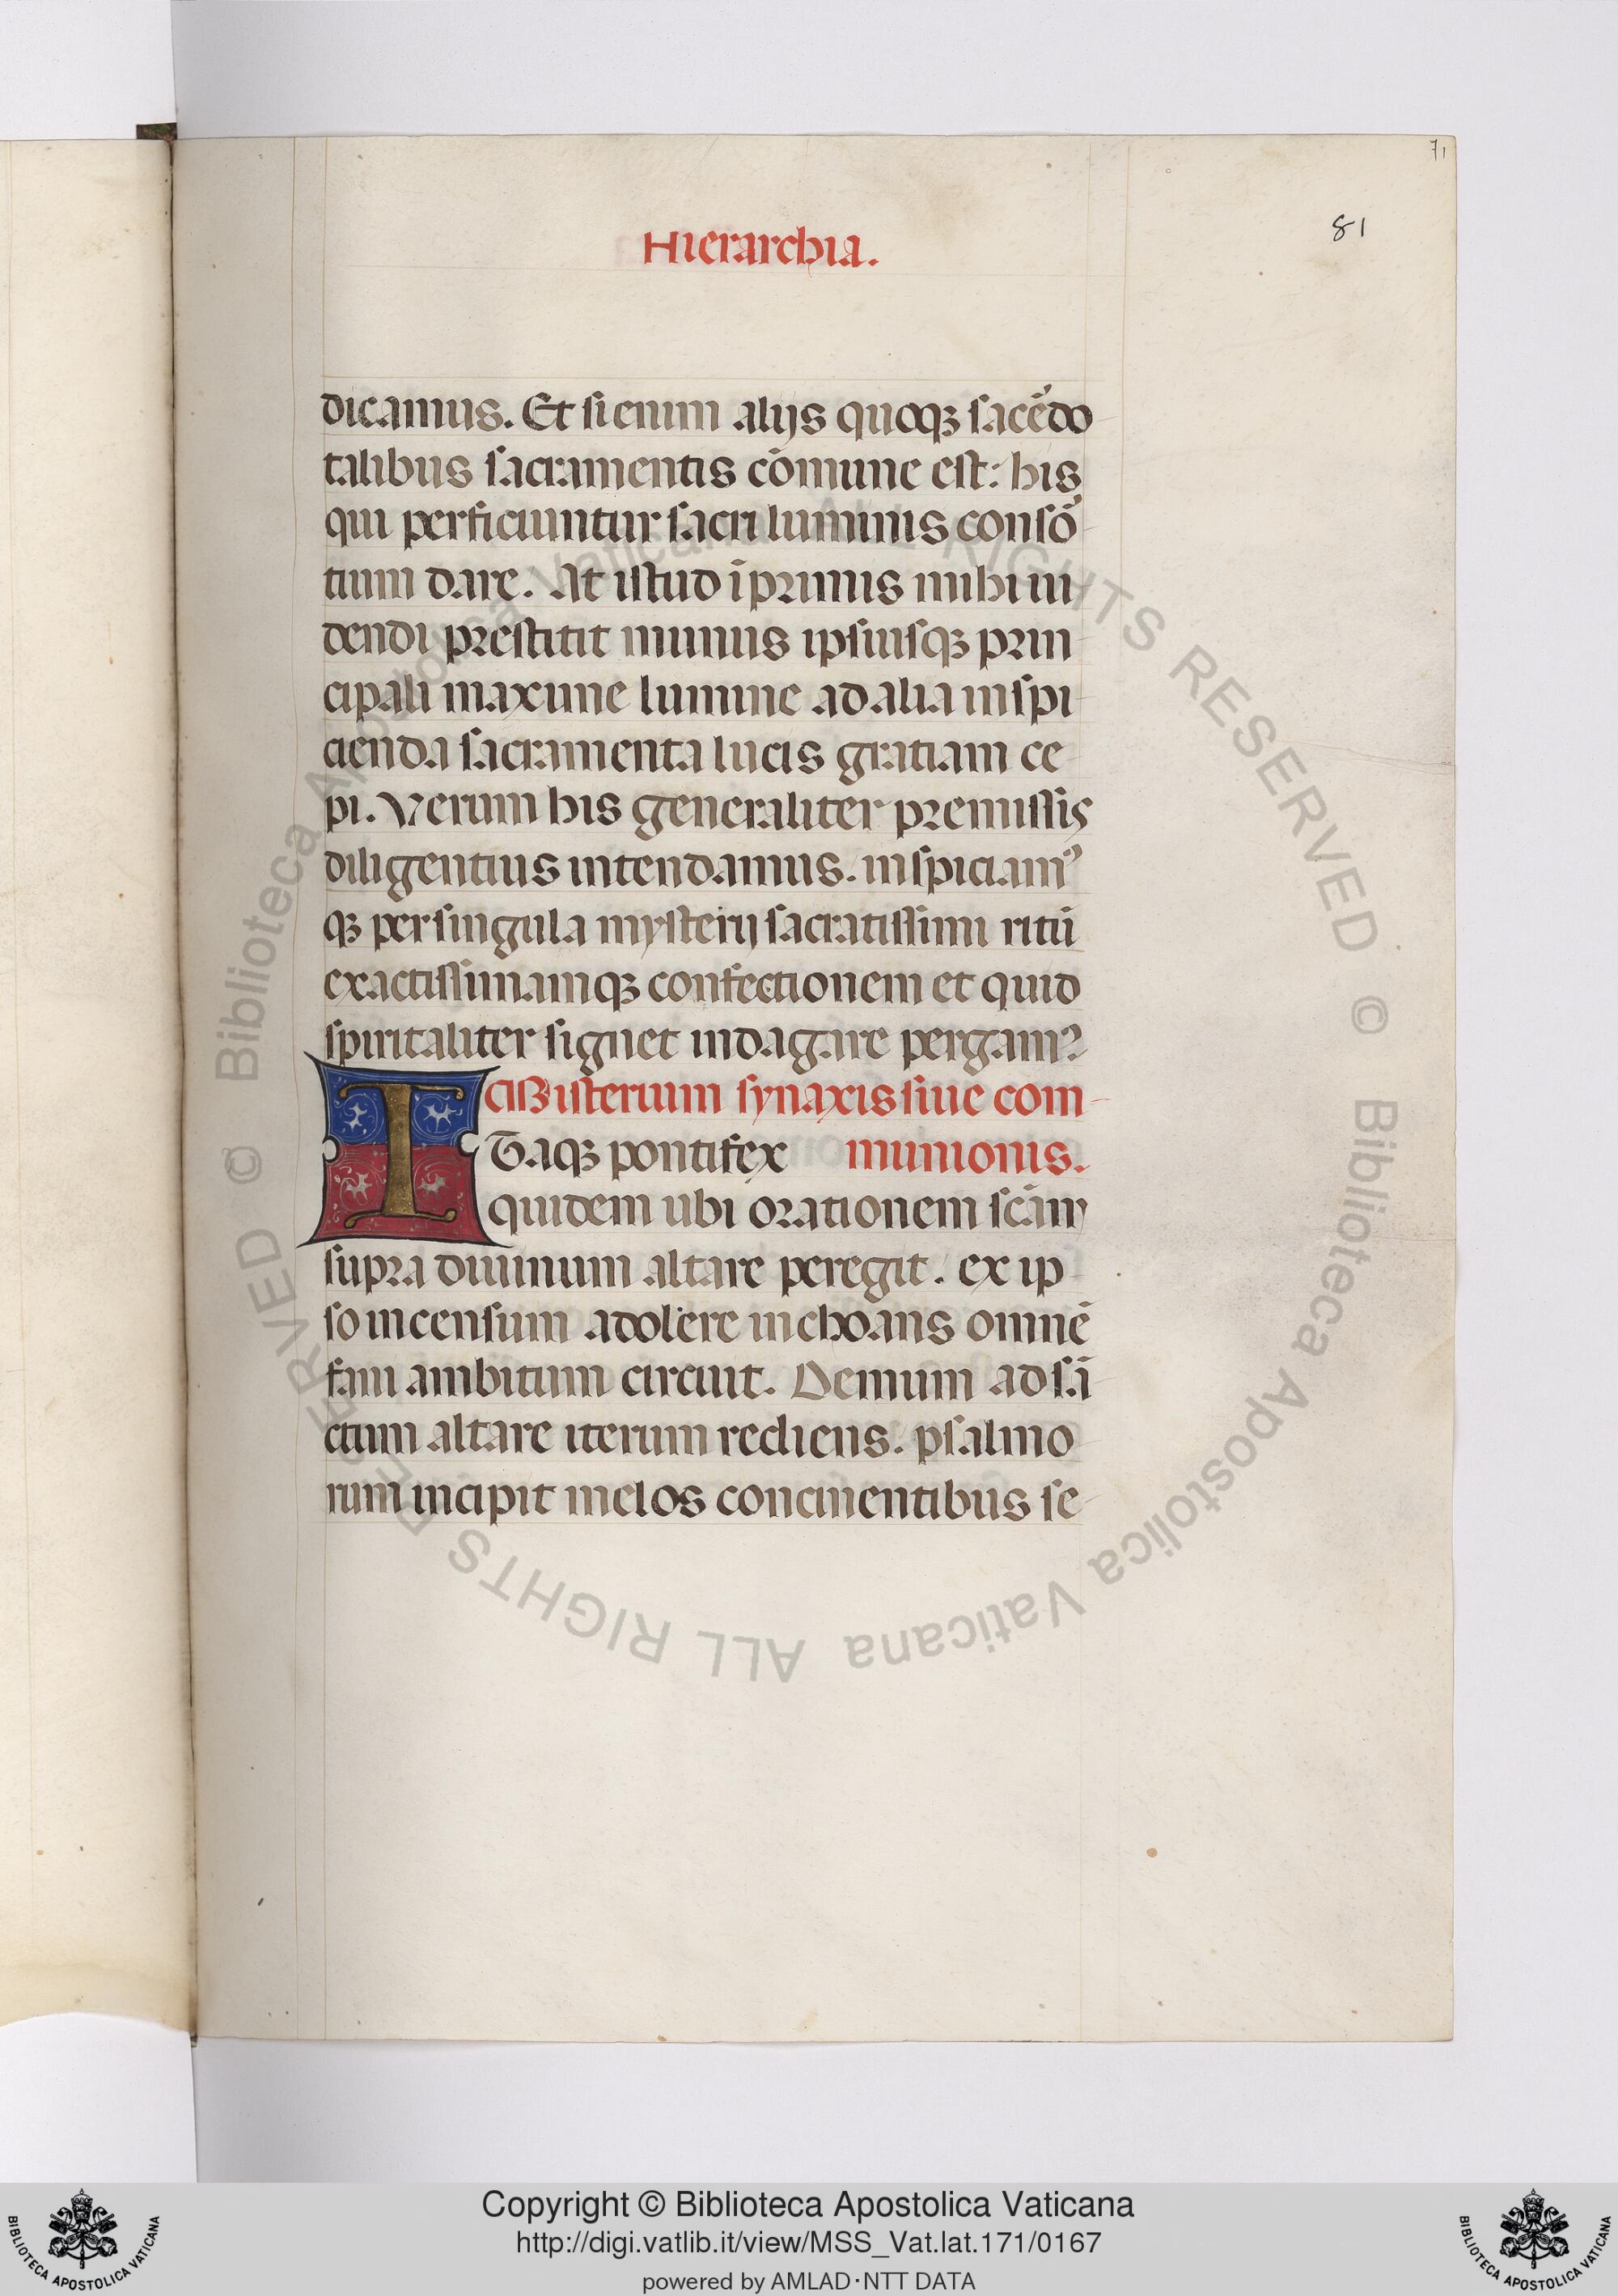 71
81
Hierarchia.
dicamus. Et si enim alijs quoqꝫ sacẽdo
talibus sacramentis cõmune est: his
qui perficiuntur sacri luminis consõ
tium dare. At istud ĩprimis mihi ui
dendi prestitit munus ipsiusqꝫ prin
cipali maxime lumine ad alia inspi
cienda sacramenta lucis gratiam ce
pi. Verum his generaliter premissis
diligentius intendamus. inspiciamꝰ
qꝫ per singula mysterij sacratissimi ritũ
exactissimamqꝫ confectionem et quid
spiritaliter signet indagare pergamꝰ
Misterium synaxis siue com
ITaqꝫ pontifex munionis.
quidem ubi orationem scãm
supra diuinum altare peregit. ex ip
so incensum adolere inchoans omnẽ
fani ambitum circuit. Demum ad sã
ctum altare iterum rediens. psalmo
rum incipit melos concinentibus se
© Biblioteca Apostolica Vaticana ALL RIGHTS RESERVED © Biblioteca Apostolica Vaticana ALL RIGHTS RESERVED
Copyright © Biblioteca Apostolica Vaticana
http://digi.vatlib.it/view/MSS_Vat.lat.171/0167
powered by AMLAD·NTT DATA
BIBLIOTECA APOSTOLICA VATICANA
BIBLIOTECA APOSTOLICA VATICANA